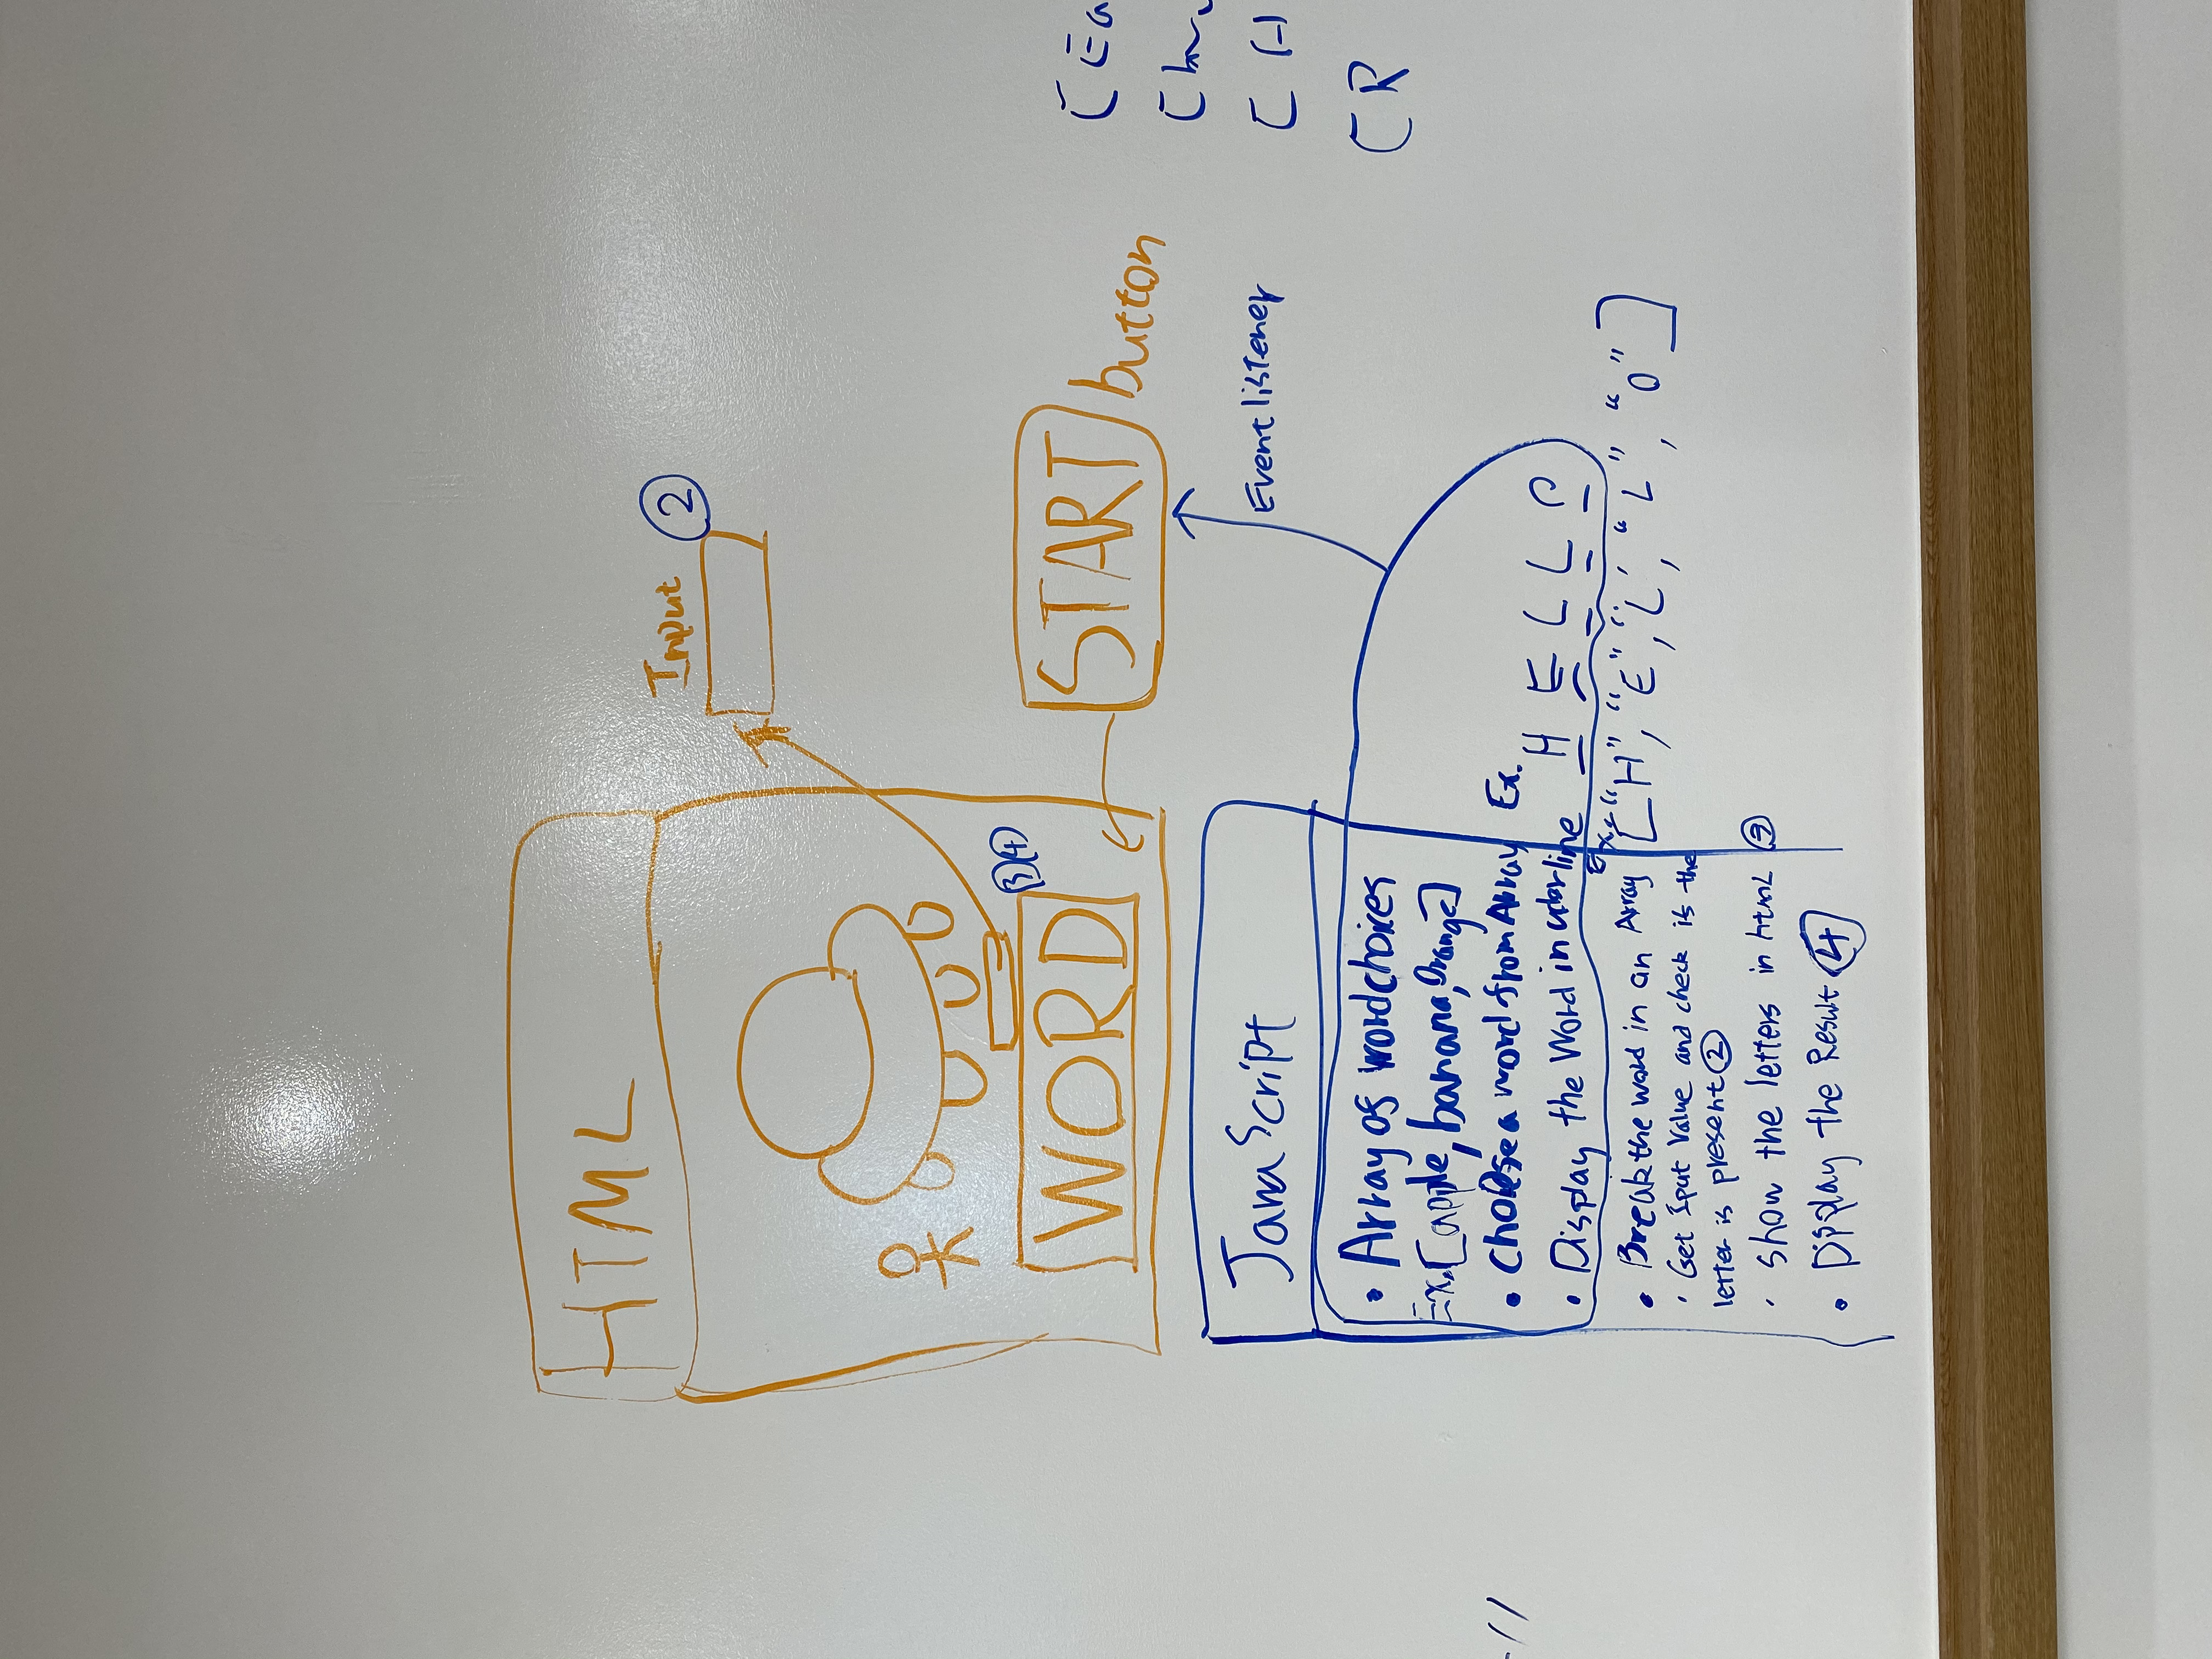 HTML
Input ②
③④
WORD
START button
JavaScript
Event listener
• Array of wordchoices
Ex. [apple, banana, Orange]
• choose a word from Array
Ex.
H E L L O
• Display the Word in uderline
• Break the word in an Array
Ex. ["H", "E", "L", "L", "O"]
• Get Input Value and check is the
letter is present ②
• show the letters in html ③
• Display the Result ④
[ Ea
[ H
[ R